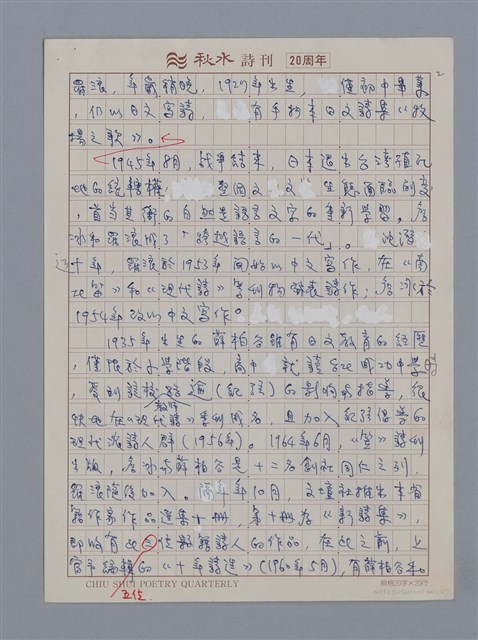 秋水詩刊 20周年
2
羅浪，年歲稍晚，1927年生，僅初中畢業
，仍以日文寫詩，有手抄本日文詩集《牧
場之歌》。
1945年8月，战爭結束，日本退出台湾殖民
地的統轄權，整個文文生態面臨劇变
，首当其衝的自然是語言文字的重新學習。詹
冰和羅浪成了「跨越語言的一代」。沈潛
近十年，羅浪於1953年開始以中文寫作，在《南
北笛》和《現代詩》等刊物發表詩作；詹冰於
1954年改以中文寫作。
1935年生的薛柏谷雖有日文教育的經歷
，僅限於小學階段，高中就讀台北成功中學時
，受到該校教師路逾（紀弦）的影响和指導，很
快地在《現代詩》季刊發表，且加入紀弦倡導的
現代派詩人群（1956年）。1964年6月，《笠》詩刊
生頒，詹冰和薛柏谷是十二名創社同仁之列，
羅浪隨後加入。年10月，文壇社推出本省
籍作家作品選集十冊，第十冊為《新詩集》，
即收有此三位縣籍詩人的作品，在此之前，上
官予編輯的《十年詩選》（1960年5月），有薛柏谷在。
五位
CHIU SHUI POETRY QUARTERLY
稿紙20字×20行